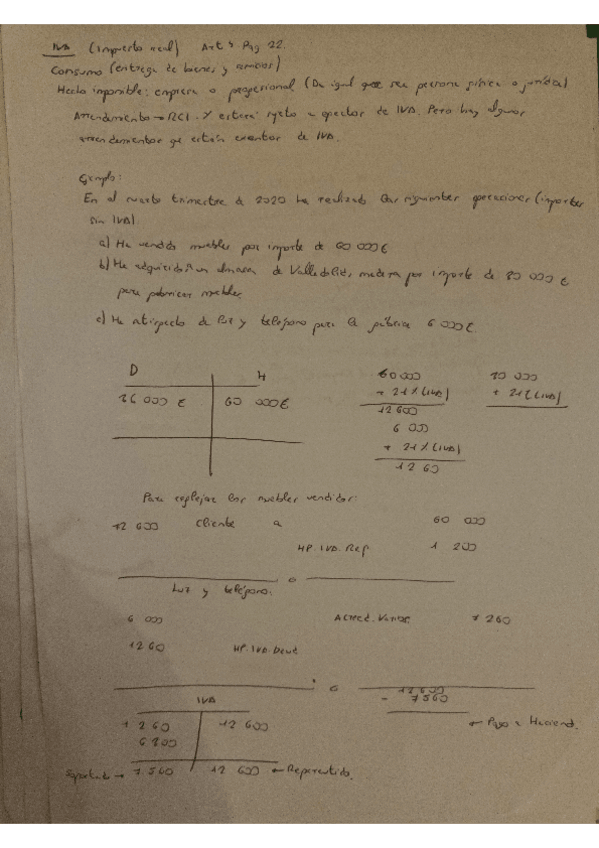 IVA (impuesto real) Art 4 Pag 22.
Consumo (entrega de bienes y servicios)
Hecho imponible: empresa o profesional (Da igual que sea persona física o jurídica)
Arrendamiento → RCI. Y estará sujeto a de IVA. Pero hay algunos
arrendamientos que están exentos de IVA.
Ejemplo:
En el cuarto trimestre de 2020 ha realizado las siguientes operaciones (importes
sin IVA):
a) Ha vendido muebles por importe de 60 000 €
b) Ha adquirido a un almacén de Valladolid, madera por importe de 30 000 €
para fabricar muebles.
c) Ha satisfecho de luz y teléfono para la fábrica 6 000 €
D H
36 000 € 60 000 €
60 000 30 000
+ 21% (IVA) + 21% (IVA)
12 600
6 000
+ 21% (IVA)
12 60
Para reflejar los muebles vendidos:
72 600 Cliente a 60 000
HP. IVA. Rep 1 200
Luz y teléfono:
6 000 Acreed. Varios 7 260
12 60 HP. IVA. Deud
IVA
12 600
- 7 560
← Pago a Haciend.
1 260 12 600
6 300
Soportado → 7 560 12 600 ← Repercutido